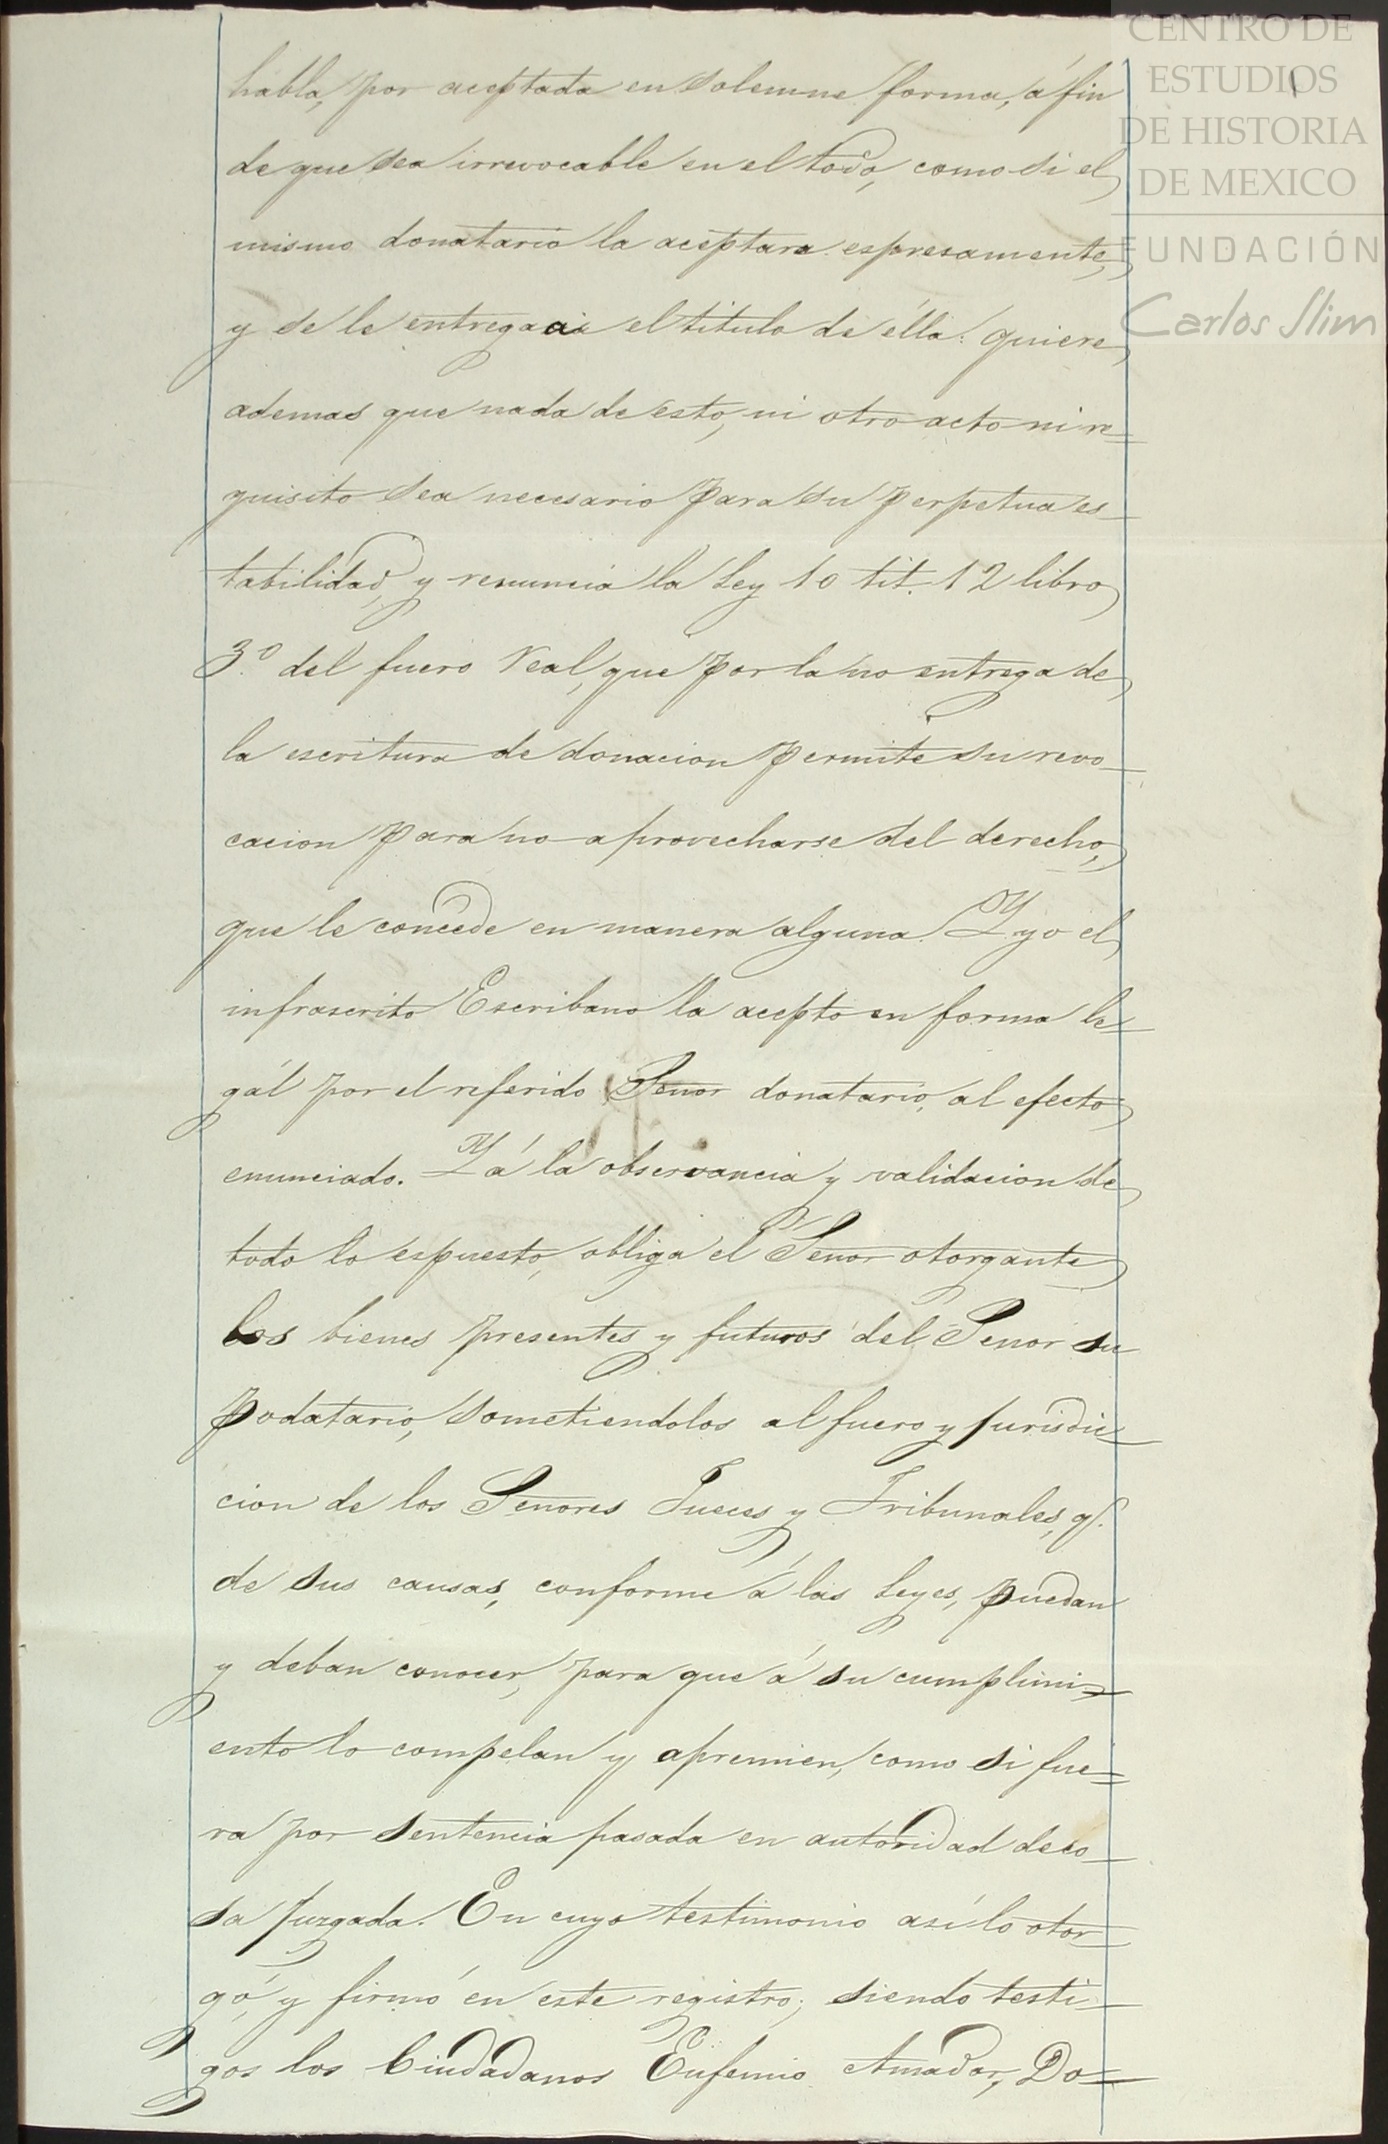 CENTRO DE
ESTUDIOS
DE HISTORIA
DE MEXICO
FUNDACIÓN
Carlos Slim
habla, por aceptada en solemne forma, á fin
de que sea irrevocable en el todo, como si el
mismo donatario la aceptara espresamente,
y se le entregara el titulo de élla: quiere
ademas que nada de esto, ni otro acto ni re=
quisito sea necesario para su perpetua es-
tabilidad, y renuncia la Ley 10 tit. 12 libro
3.º del fuero Real, que por la no entrega de
la escritura de donacion permite su revo-
cacion para no aprovecharse del derecho,
que le concede en manera alguna. Y yo el
infrascrito Escribano la acepto en forma le-
gál por el referido Señor donatario, al efecto
enunciado. Y á la observancia y validacion de
todo lo espuesto, obliga el Señor otorgante
los bienes presentes y futuros del Señor su
podatario, sometiendolos al fuero y jurisdic-
cion de los Señores Jueces y Tribunales, q.
de sus causas, conforme á las Leyes, puedan
y deban conocer, para que á su cumplimi-
ento lo compelan y apremien, como si fue=
ra por sentencia pasada en autoridad de co-
sa juzgada. En cuyo testimonio así lo otor-
gó, y firmó en este registro; siendo testi-
gos los Ciudadanos Eufemio Amador, Do=